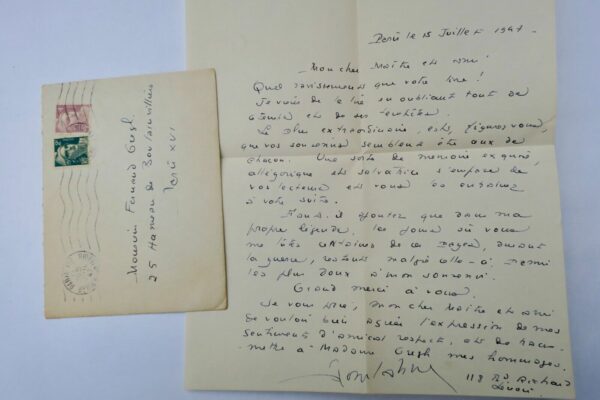 Paris le 15 Juillet 1947.
Mon cher Maître et ami
Quel ravissement que votre livre !
Je viens de le lire en oubliant tout de
et de ses
Le plus extraordinaire, est, figurez vous,
que vos souvenirs semblent être aux de
chacun. Une sorte de mémoire exquise,
allégorique et salvatrice s'empare de
vos lecteurs et vous les entraînez
à votre suite.
ajouter que dans ma
propre légende, les jours où vous
me lûtes certaines de ces pages, durant
la guerre, restent malgré elle - parmi
les plus doux à mon souvenir.
Grand merci à vous.
Je vous prie, mon cher Maître et ami
de vouloir bien agréer l'expression de mes
sentiments d'amical respect, et de trans-
mettre à Madame Gregh mes hommages.
118 Bd Richard
Lenoir
Monsieur Fernand Gregh
25 Hameau de Boulainvilliers
Paris XVI